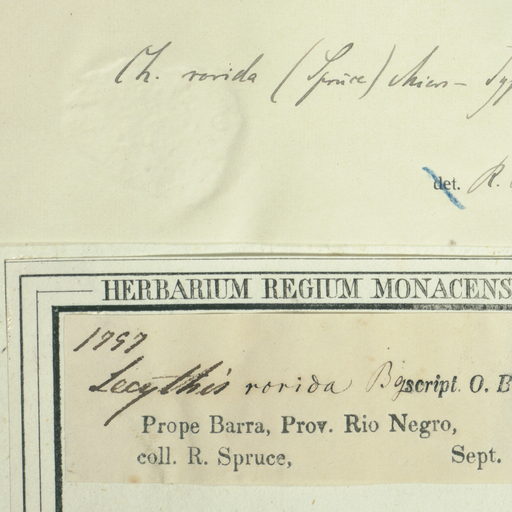 Ch. rorida (Spruce) Miers - Typ
det. R.
HERBARIUM REGIUM MONACENS
1797
Lecythis rorida Bg script. O. B
Prope Barra, Prov. Rio Negro,
coll. R. Spruce, Sept.